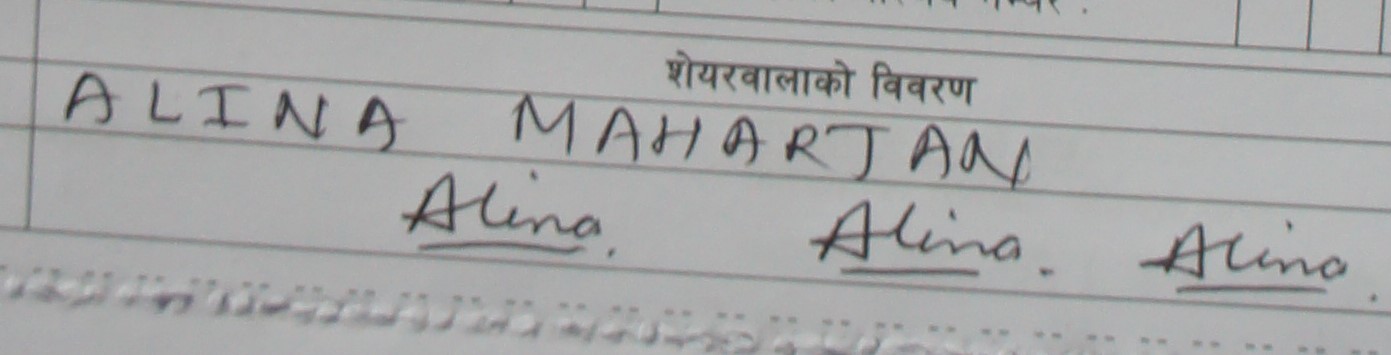 शेयरवालाको विवरण
ALINA MAHARJAN
Alina. Alina. Alina.